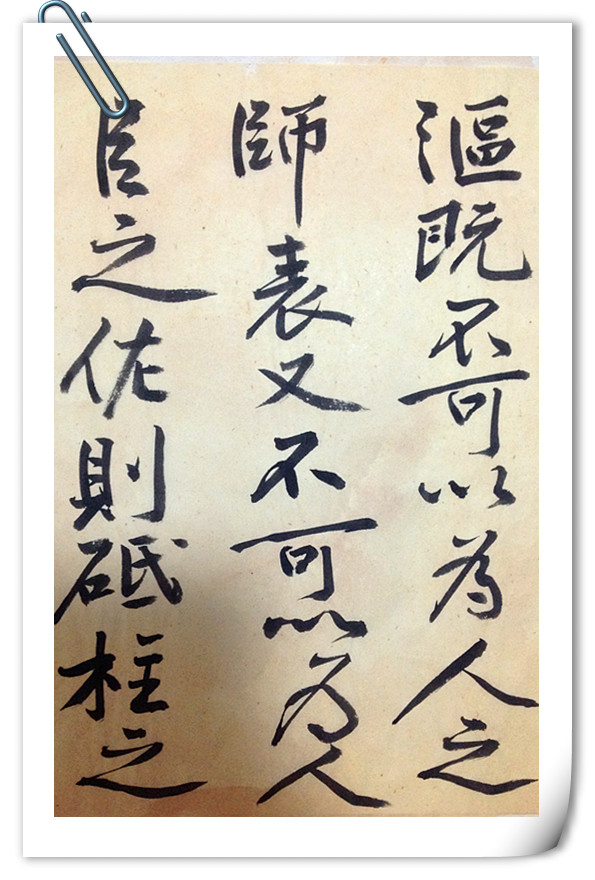 漚既不可以為人之
師表又不可以為人
臣之佐則砥柱之